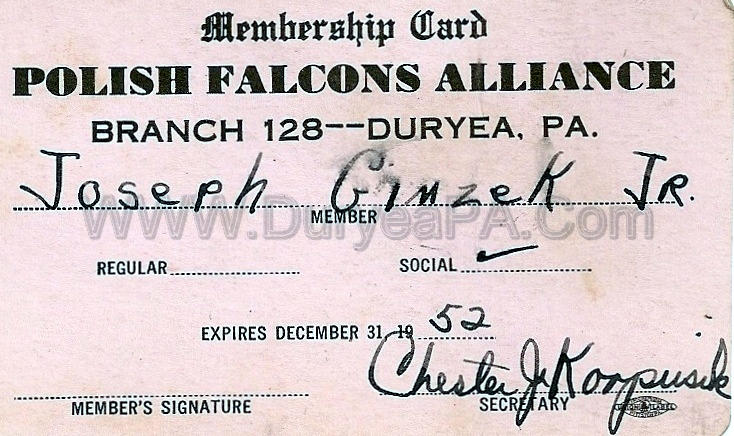 Membership Card
POLISH FALCONS ALLIANCE
BRANCH 128--DURYEA, PA.
Joseph Gimzek Jr.
MEMBER
WWW.DuryeaPA.Com
REGULAR SOCIAL ✓
EXPIRES DECEMBER 31 19 52
Chester J. Korpusik
MEMBER'S SIGNATURE SECRETARY